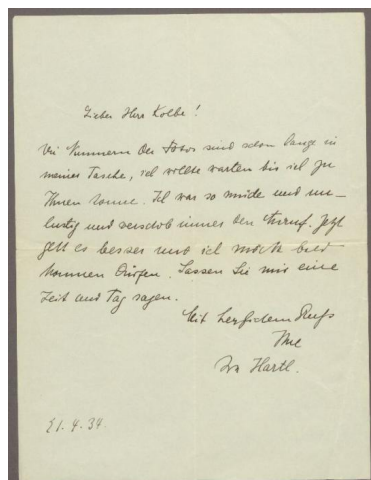 Lieber Herr Kolbe!
Die Nummern der Fotos sind schon lange in
meiner Tasche, ich wollte warten bis ich zu
Ihnen komme. Ich war so müde und un-
lustig und verschob immer den Anruf. Jetzt
geht es besser und ich möchte bald
kommen dürfen. Lassen Sie mir eine
Zeit und Tag sagen.
Mit herzlichem Gruß
Ihre
Hartl.
21.4.34.